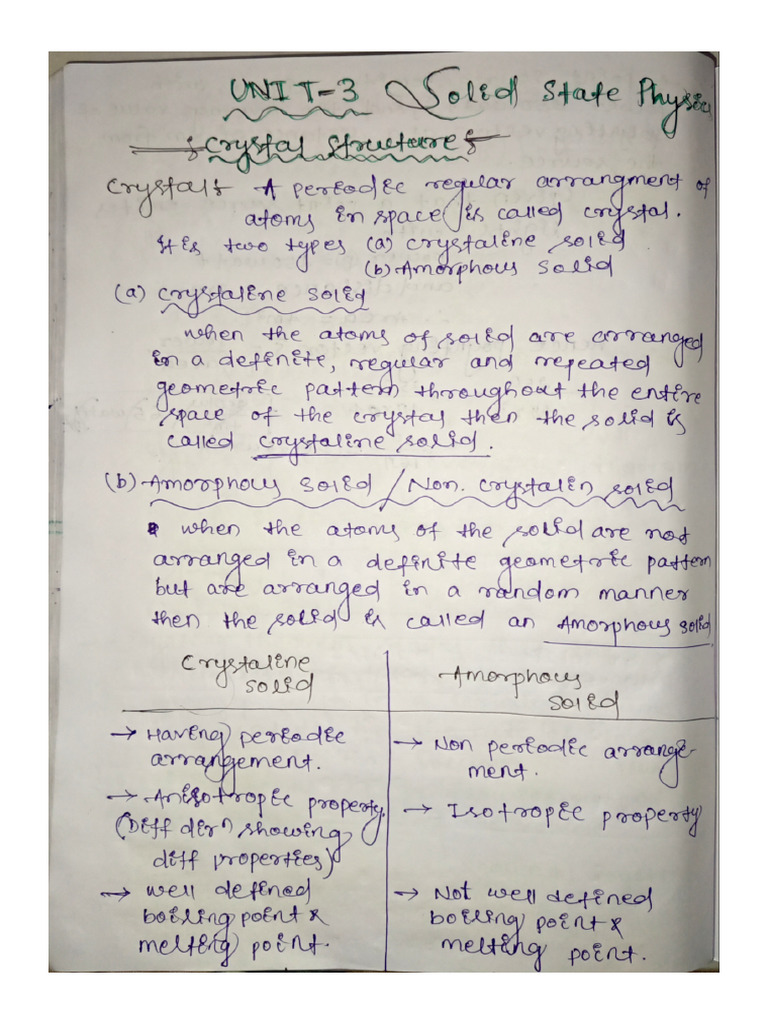 UNIT-3 Solid State Physics
Crystal Structure
Crystal :- A periodic regular arrangment of
atoms in space is called crystal.
It is two types (a) Crystaline solid
(b) Amorphous Solid
(a) Crystaline Solid
when the atoms of solid are arranged
in a definite, regular and repeated
geometric pattern throughout the entire
space of the crystal then the solid is
called crystaline solid.
(b) Amorphous Solid / Non. Crystalin solid
when the atoms of the solid are not
arranged in a definite geometric pattern
but are arranged in a random manner
then the solid is called an Amorphous solid
Crystaline
Solid
→ Having periodic
arrangement.
→ Anisotropic property.
(Diff dirn showing
diff properties)
→ well defined
boiling point &
melting point.
Amorphous
Solid
→ Non periodic arrange-
ment.
→ Isotropic property
→ Not well defined
boiling point &
melting point.